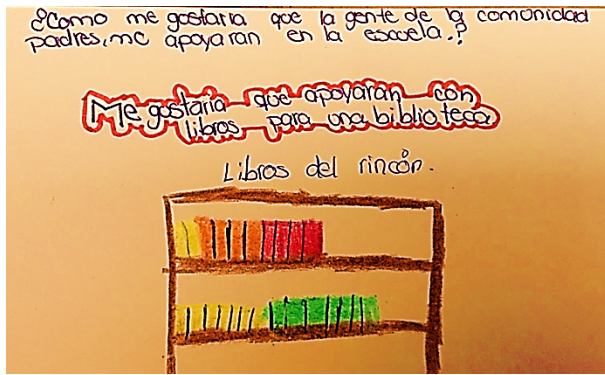 ¿Como me gostaria que la gente de la comunidad
padres, me apoyaran en la escuela.?
Me gostaria que apoyaran con
libros para una biblioteca
Libros del rincón.